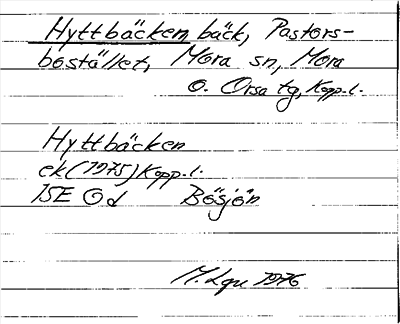 Hyttbäcken, bäck, Pastors-
bostället, Mora sn, Mora
o. Orsa tg, Kopp. l.
Hyttbäcken
ek (1975) Kopp. l.
15E 0d Bösjön
M. Lgn 1976